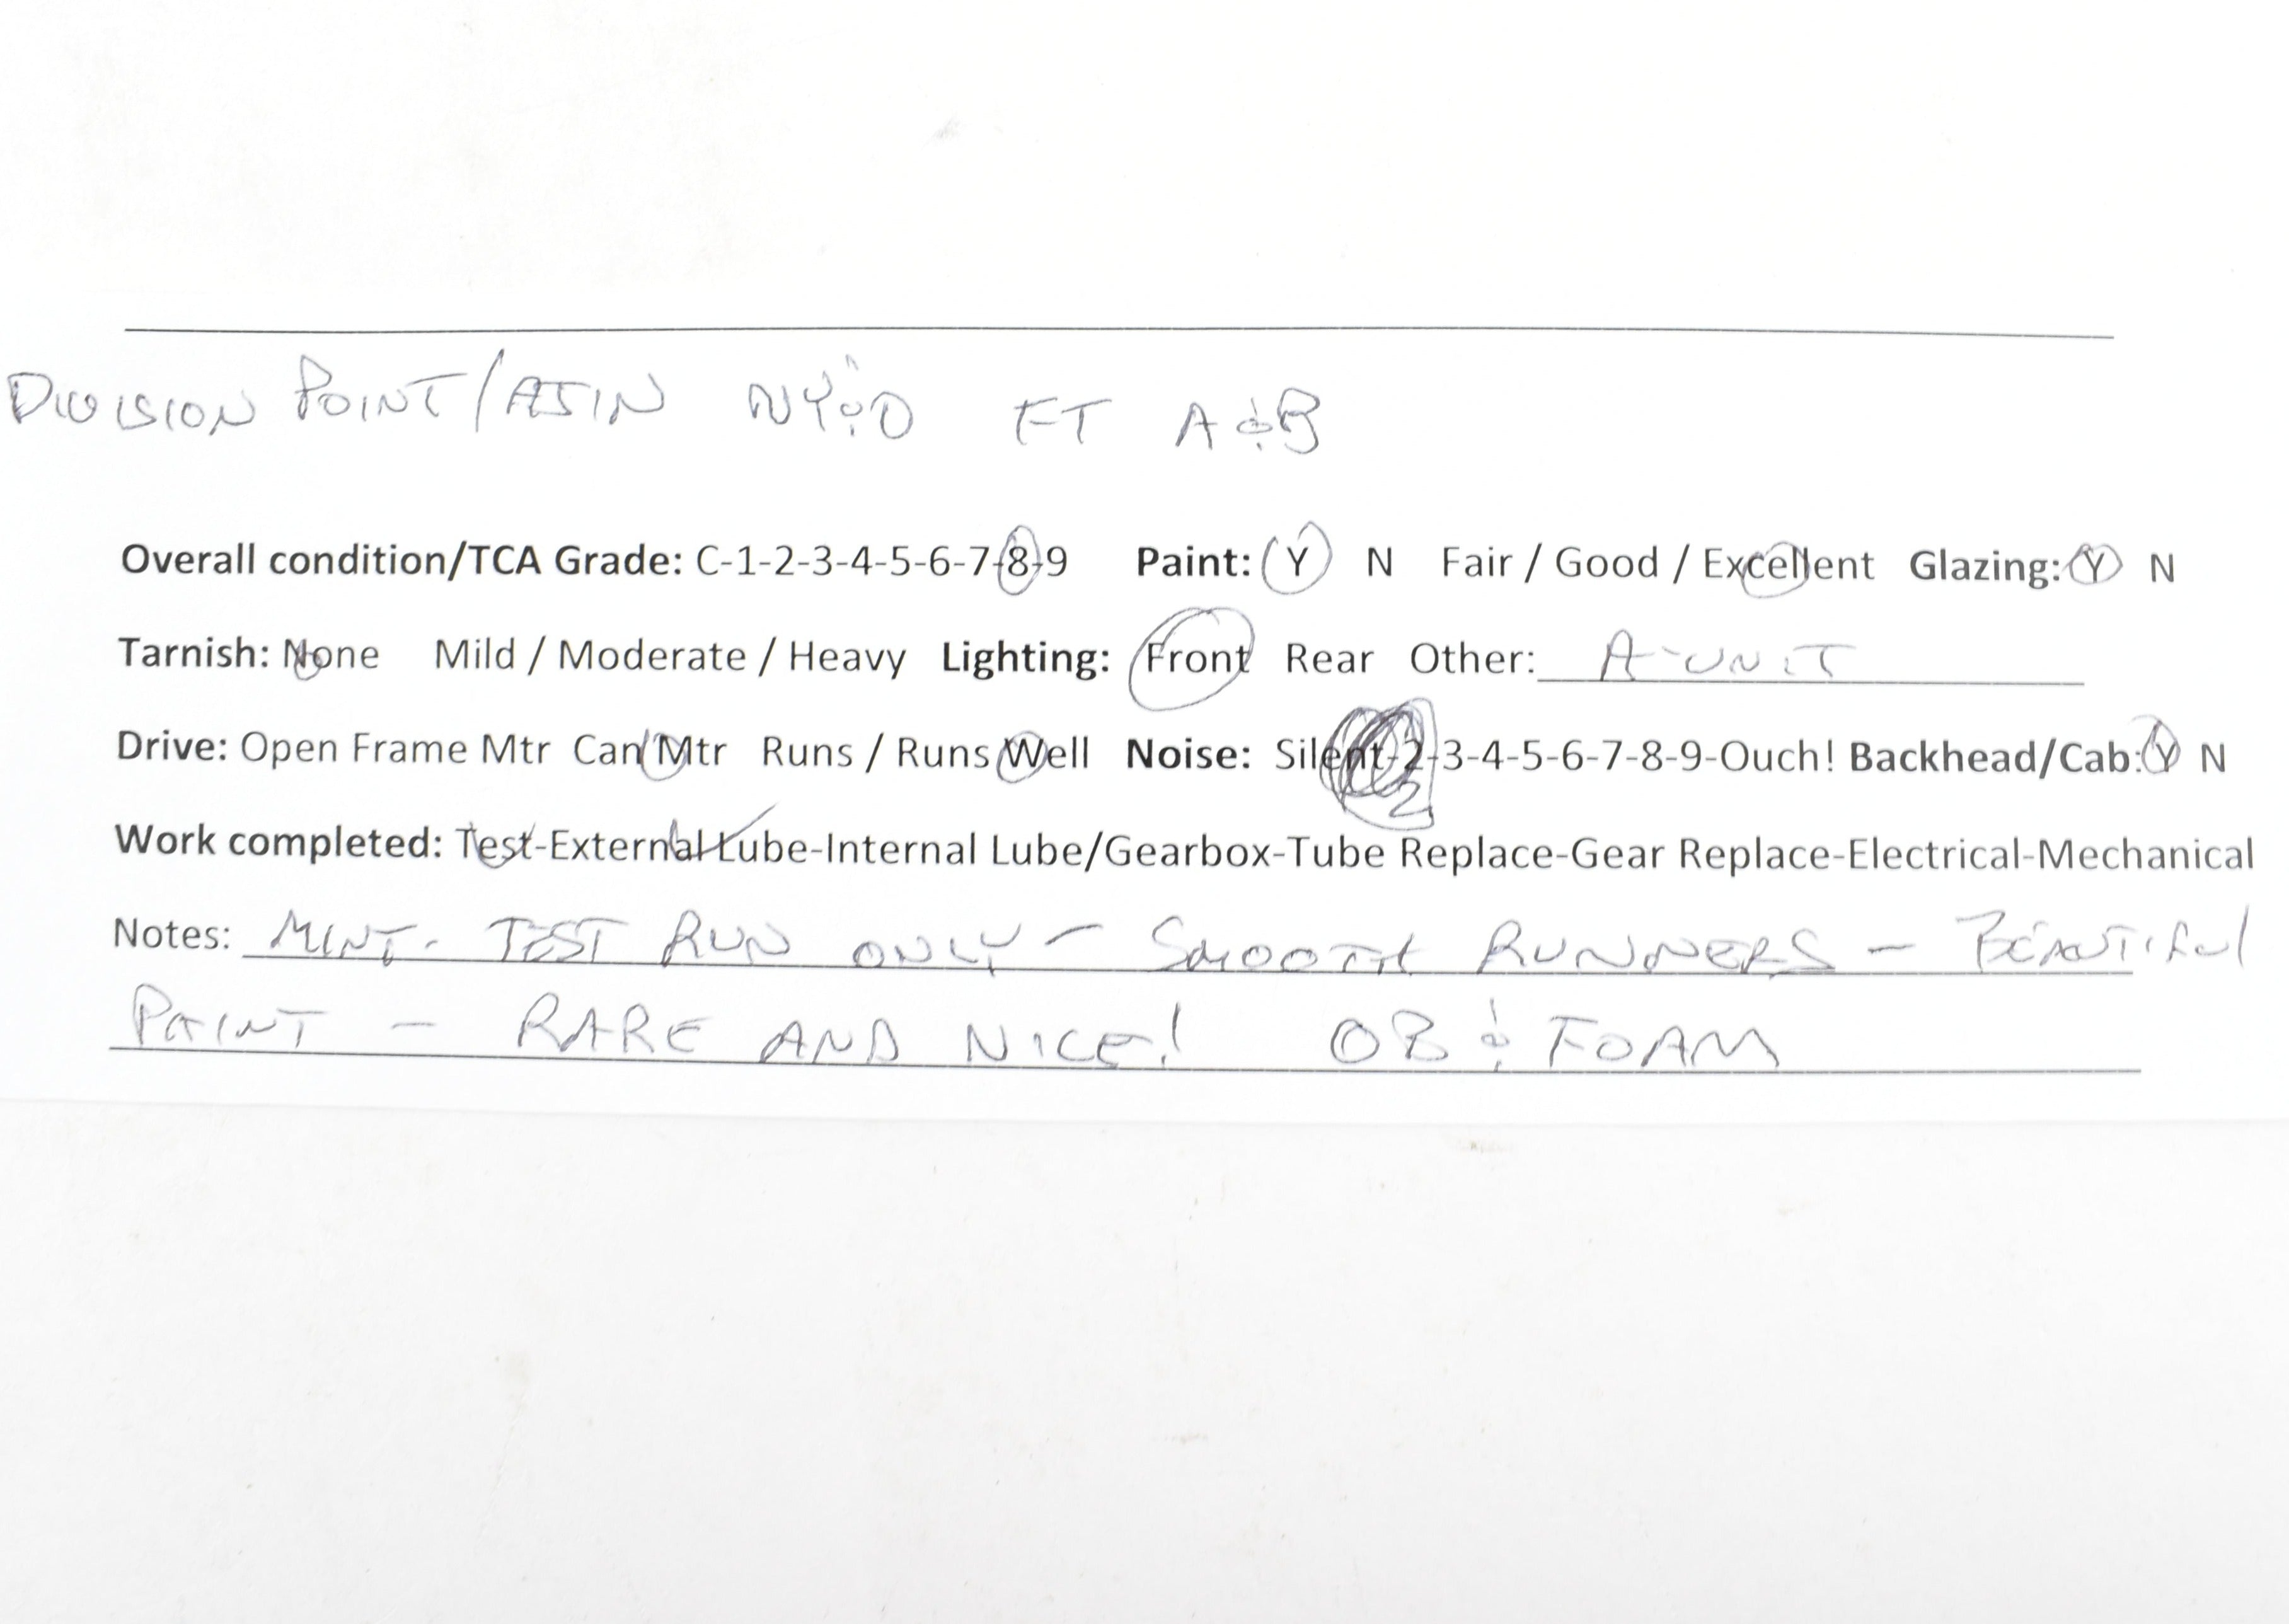 DIVISION POINT/AJIN NYO&O FT A&B
Overall condition/TCA Grade: C-1-2-3-4-5-6-7-8-9 Paint: Y N Fair / Good / Excellent Glazing: Y N
Tarnish: None Mild / Moderate / Heavy Lighting: Front Rear Other: A-UNIT
Drive: Open Frame Mtr Can Mtr Runs / Runs Well Noise: Silent-2-3-4-5-6-7-8-9-Ouch! Backhead/Cab: Y N
2
Work completed: Test-External Lube-Internal Lube/Gearbox-Tube Replace-Gear Replace-Electrical-Mechanical
Notes: MINT- TEST RUN ONLY - SMOOTH RUNNERS - BEAUTIFUL
PAINT - RARE AND NICE! OB & FOAM